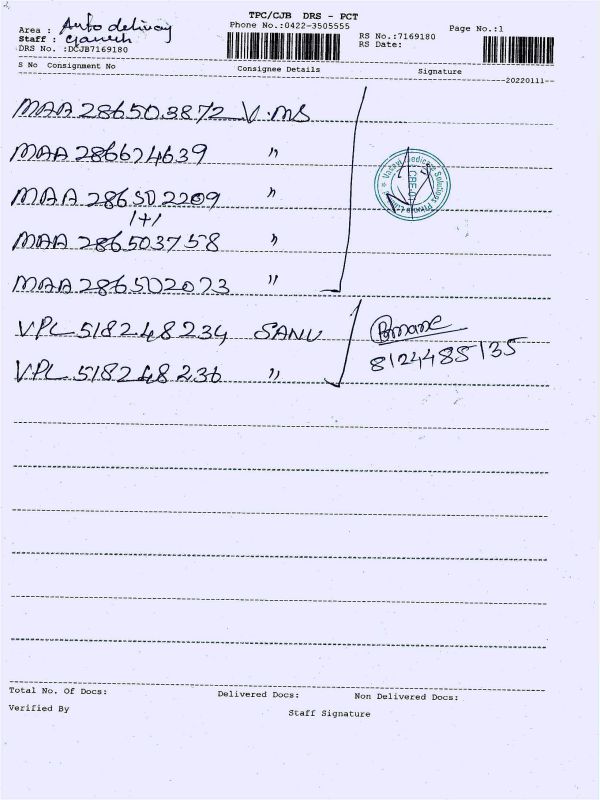 TPC/CJB DRS - PCT
Area : Auto delivery
Phone No.:0422-3505555
Page No.:1
Staff : Ganesh
RS No.:7169180
DRS No. :DCJB7169180
RS Date:
S No Consignment No Consignee Details Signature
20220111
MAA 286503872 V.MS
MAA 286624639 "
MAA 286502209 "
1+1
MAA 286503758 "
MAA 286502073 "
VPL 518248234 SANU
VPL 518248236 "
8124485135
Total No. Of Docs: Delivered Docs: Non Delivered Docs:
Verified By Staff Signature